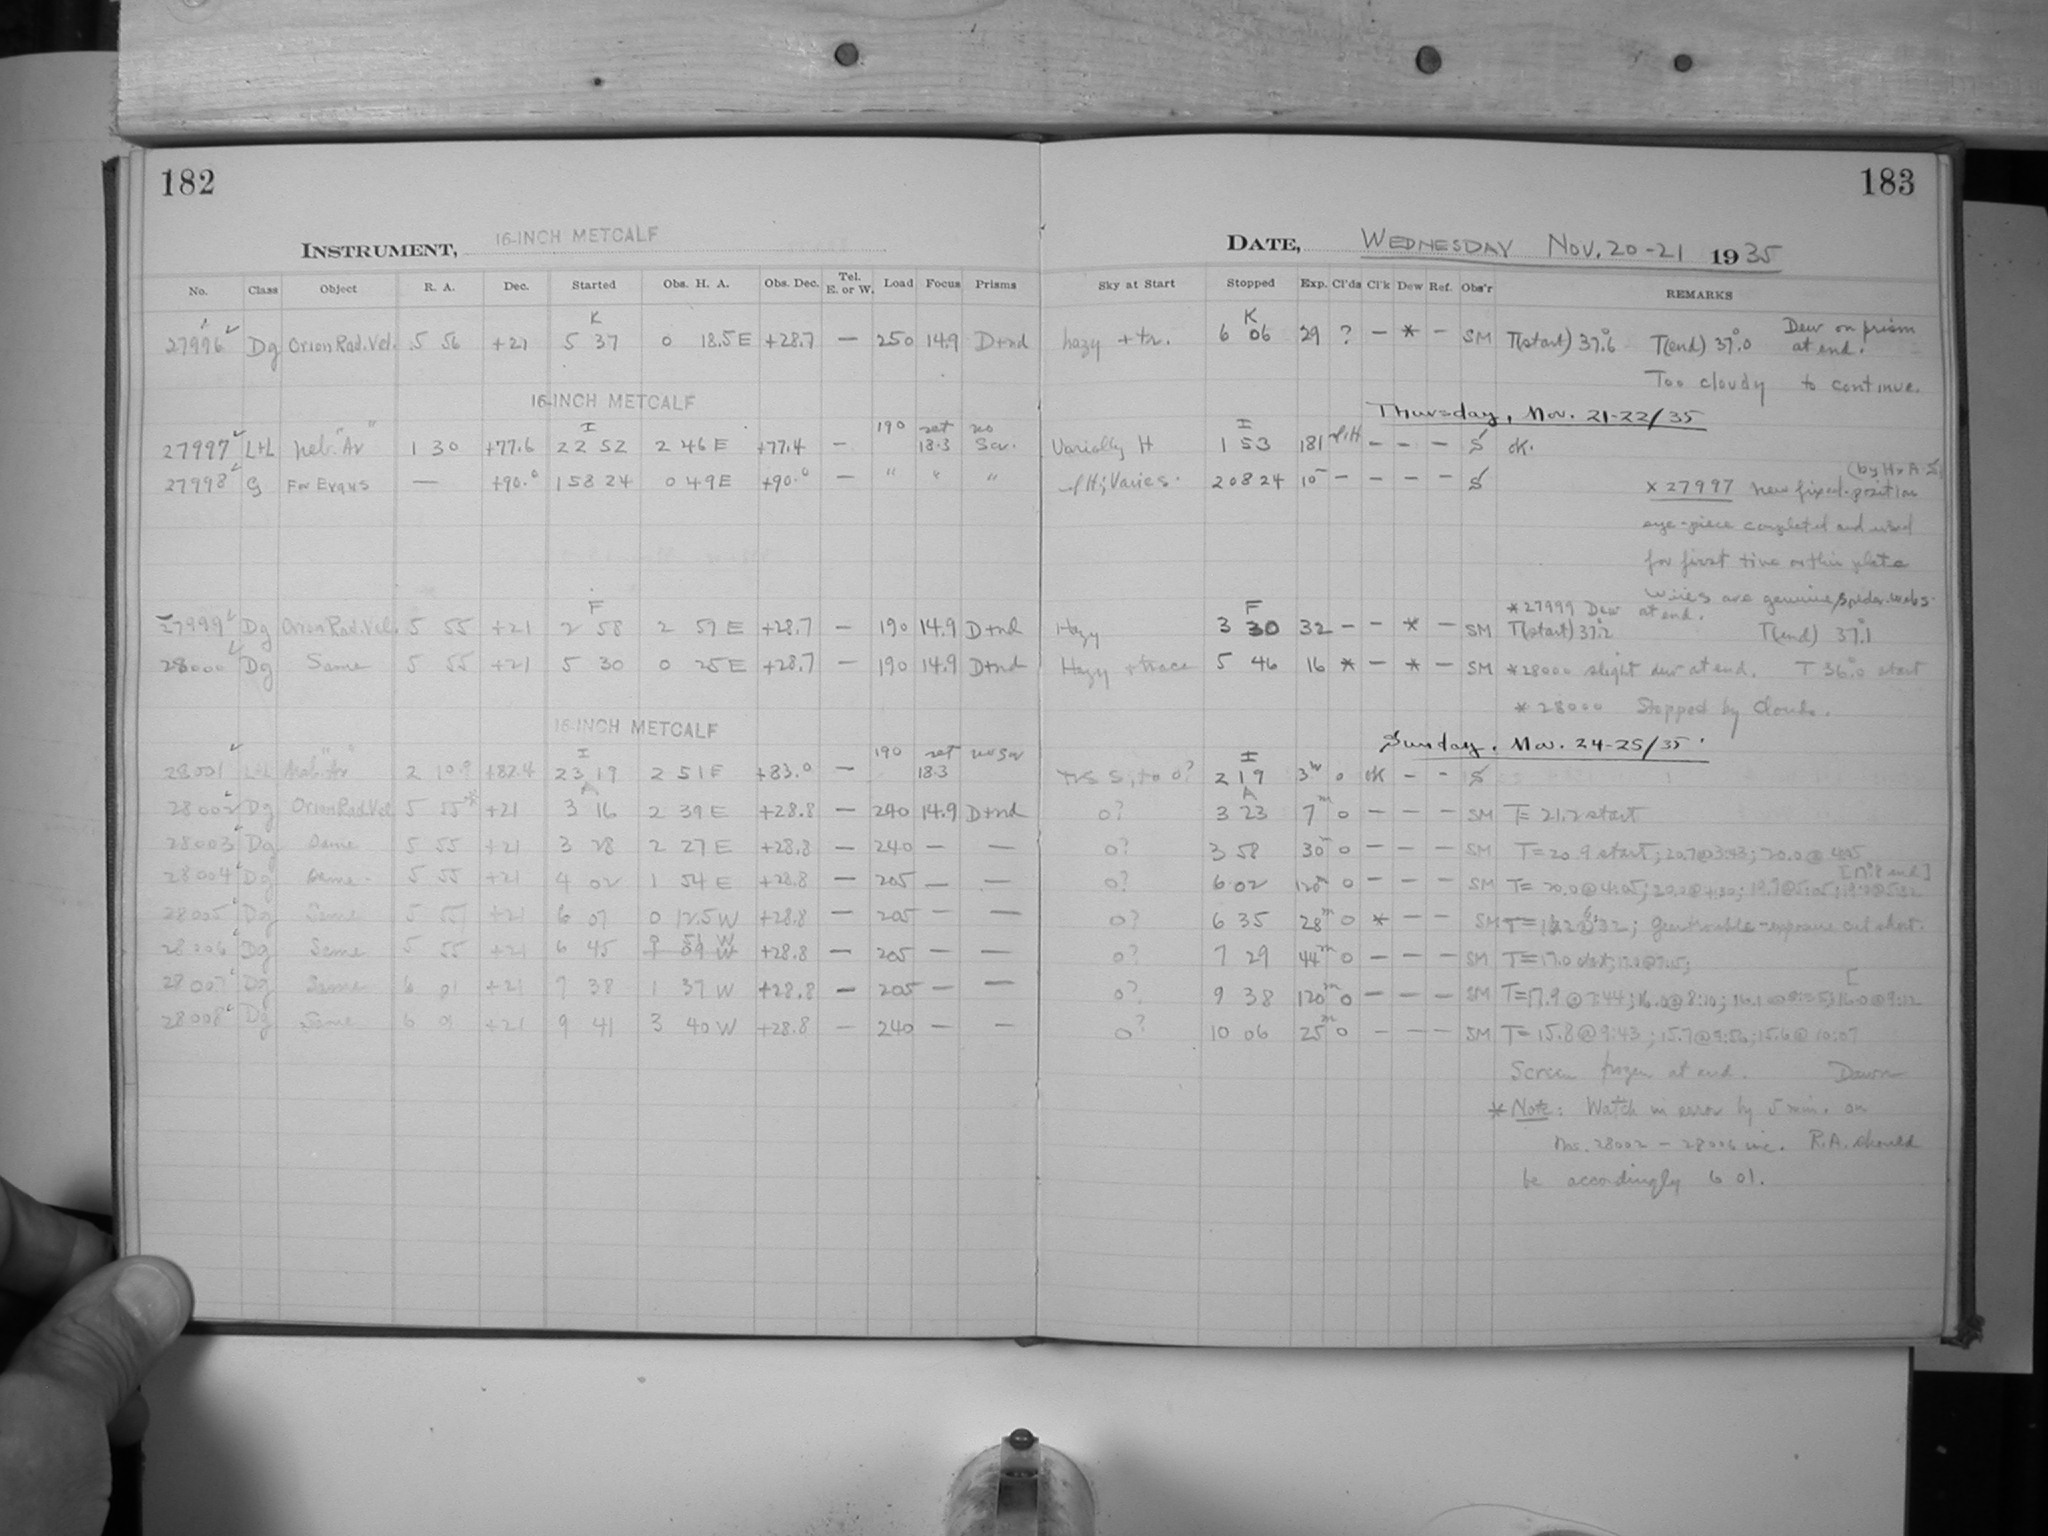 182
183
INSTRUMENT, 16-INCH METCALF
DATE, WEDNESDAY Nov. 20-21 1935
No. Class Object R. A. Dec. Started Obs. H. A. Obs. Dec. Tel. E. or W. Load Focus Prisms Sky at Start Stopped Exp. Cl'ds Cl'k Dew Ref. Obs'r REMARKS
K K
27996 Dg Orion Rad. Vel. 5 56 +21 5 37 0 18.5 E +28.7 — 250 14.9 D+nd hazy + tr. 6 06 29 ? — * — SM T(start) 37.°6 T(end) 37.°0 Dew on prism at end.
Too cloudy to continue.
16-INCH METCALF
Thursday, Nov. 21-22/35
I 190 set no I
27997 L+L Neb. "Av" 1 30 +77.6 22 52 2 46 E +77.4 — 18.3 Scr. Variably H 1 53 181 — — — S OK.
27998 G For Evans — +90.° 1 58 24 0 49 E +90.° — " " " H; Varies. 2 08 24 10 — — — — S
x 27997 New fixed-position
eye-piece completed and used
for first time on this plate
Wires are genuine spider-webs.
*27999 Dew at end.
F F
27999 Dg Orion Rad. Vel. 5 55 +21 2 58 2 57 E +28.7 — 190 14.9 D+nd Hazy 3 30 32 — — * — SM T(start) 37.°2 T(end) 37.°1
28000 Dg Same 5 55 +21 5 30 0 25 E +28.7 — 190 14.9 D+nd Hazy + trace 5 46 16 * — * — SM *28000 slight dew at end. T 36.°0 start
*28000 Stopped by Clouds.
16-INCH METCALF
Sunday, Nov. 24-25/35
I 190 set no Scr I
28001 L+L Neb. "Av" 2 10.9 +82.4 23 19 2 51 E +83.0 — 18.3 2 19 3 0 OK — — S
A A
28002 Dg Orion Rad. Vel 5 55* +21 3 16 2 39 E +28.8 — 240 14.9 D+nd 0? 3 23 7m 0 — — — SM T= 21.2 start
28003 Dg Same 5 55 +21 3 28 2 27 E +28.8 — 240 — — 0? 3 58 30m 0 — — — SM T=20.9 start; 20.7@3:43; 20.0@4:05
28004 Dg Same 5 55 +21 4 02 1 54 E +28.8 — 205 — — 0? 6 02 120m 0 — — — SM T= 20.0@4:05; 20.0@4:30; 19.7@5:05;
28005 Dg Same 5 55 +21 6 07 0 12.5 W +28.8 — 205 — — 0? 6 35 28m 0 * — — SM Gear trouble - exposure cut short.
28006 Dg Same 5 55 +21 6 45 0 51 W +28.8 — 205 — — 0? 7 29 44m 0 — — — SM T=17.0
28007 Dg Same 6 01 +21 7 38 1 37 W +28.8 — 205 — — 0? 9 38 120m 0 — — — SM T=17.9@7:44; 16.0@8:10; 16.0@9:12
28008 Dg Same 6 01 +21 9 41 3 40 W +28.8 — 240 — — 0? 10 06 25m 0 — — — SM T= 15.8@9:43; 15.7@9:56; 15.6@10:07
Screen frozen at end. Dawn
* Note: Watch in error by 5 min. on
Nos. 28002 - 28006 inc. R.A. should
be accordingly 6 01.